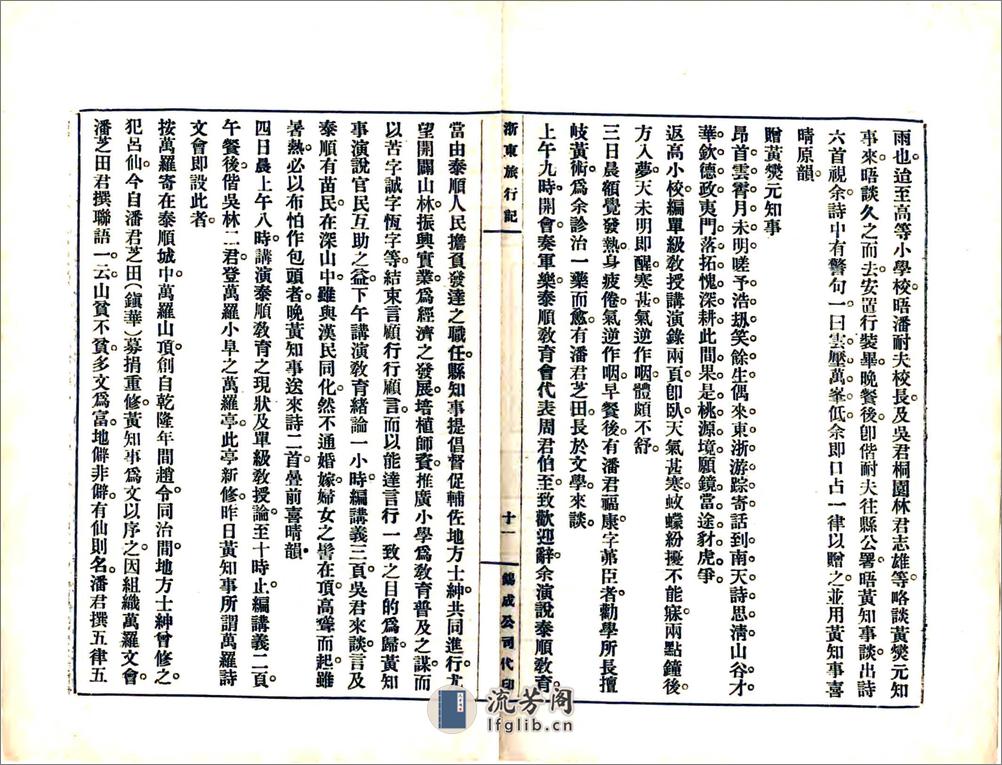 雨也。逕至高等小學校。晤潘耐夫校長及吳君桐園林君志雄等略談。黃爕元知
事來。晤談久之而去。安置行裝畢。晚餐後卽偕耐夫往縣公署。晤黃知事談。出詩
六首視余。詩中有警句。一曰雲壓萬峯低。余卽口占一律以贈之。並用黃知事喜
晴原韻。
贈黃爕元知事
昂首雲霄月未明。嗟予浩刼笑餘生。偶來東浙游踪寄。話到南天詩思淸。山谷才
華欽德政。夷門落拓愧深耕。此間果是桃源境。願鏡當途豺虎爭。
返高小校。編單級敎授講演錄兩頁。卽臥。天氣甚寒。蚊蠓紛擾不能寐。兩點鐘後。
方入夢。天未明卽醒。寒甚。氣逆作咽。體頗不舒。
三日晨。額覺發熱。身疲倦。氣逆作咽。早餐後有潘君福康字茀臣者。勸學所長。擅
岐黃術。爲余診治。一藥而愈。有潘君芝田。長於文學。來談。
上午九時開會奏軍樂。泰順敎育會代表周君伯至致歡迎辭。余演說泰順敎育。
浙東旅行記
十一
錫成公司代印
當由泰順人民擔負發達之職任。縣知事提倡督促。輔佐地方士紳共同進行。尤
望開闢山林。振興實業。爲經濟之發展。培植師資。推廣小學。爲敎育普及之謀。而
以苦字誠字恆字等結束。言顧行行顧言。而以能達言行一致之目的爲歸。黃知
事演說官民互助之益。下午講演敎育緒論一小時。編講義三頁。吳君來談。言及
泰順有苗民。在深山中。雖與漢民同化。然不通婚嫁。婦女之髻在頂。高聳而起。雖
暑熱必以布怕作包頭者。晚黃知事送來詩二首。疊前喜晴韻。
四日晨。上午八時。講演泰順敎育之現狀及單級敎授論。至十時止。編講義二頁。
午餐後。偕吳林二君。登萬羅小阜之萬羅亭。此亭新修。昨日黃知事所謂萬羅詩
文會卽設此者。
按萬羅寄在泰順城中。萬羅山頂。創自乾隆年間趙令。同治間。地方士紳曾修之。
犯呂仙。今自潘君芝田(鎭華)募捐重修。黃知事爲文以序之。因組織萬羅文會。
潘芝田君撰聯語一云。山貧不貧多文爲富。地僻非僻有仙則名。潘君撰五律五
流芳阁
lfglib.cn